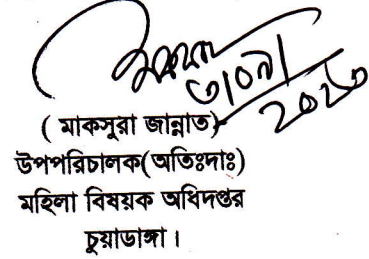 ( মাকসুরা জান্নাত)
উপপরিচালক(অতিঃদাঃ)
মহিলা বিষয়ক অধিদপ্তর
চুয়াডাঙ্গা।